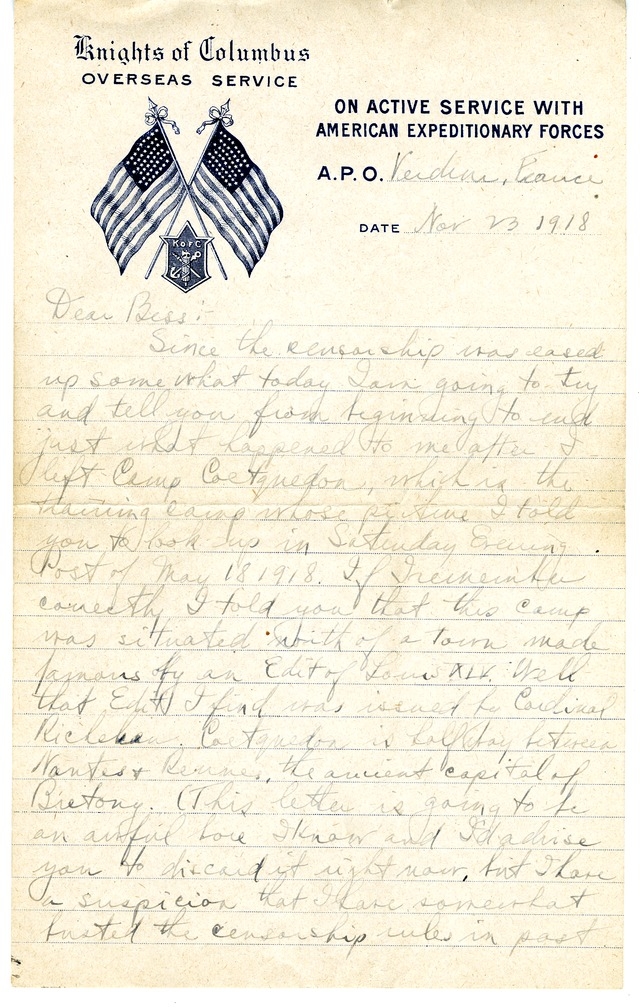 Knights of Columbus
OVERSEAS SERVICE
ON ACTIVE SERVICE WITH
AMERICAN EXPEDITIONARY FORCES
A.P.O. Verdun, France
DATE Nov 23 1918
K of C
Dear Bess:-
Since the censorship was eased
up somewhat today I am going to try
and tell you from beginning to end
just what happened to me after I
left Camp Coetquedon, which is the
training camp whose picture I told
you to look up in Saturday Evening
Post of May 18 1918. If I remember
correctly I told you that this camp
was situated of a town made
famous by an Edit of Louis XIV. Well
that Edit I find was issued by Cardinal
Coetquedon is half way between
Nantes & Rennes, the ancient capital of
Bretony. (This letter is going to be
an awful bore I know and I'd advise
you to discard it right now, but I have
a suspicion that I have somewhat
busted the censorship rules in past